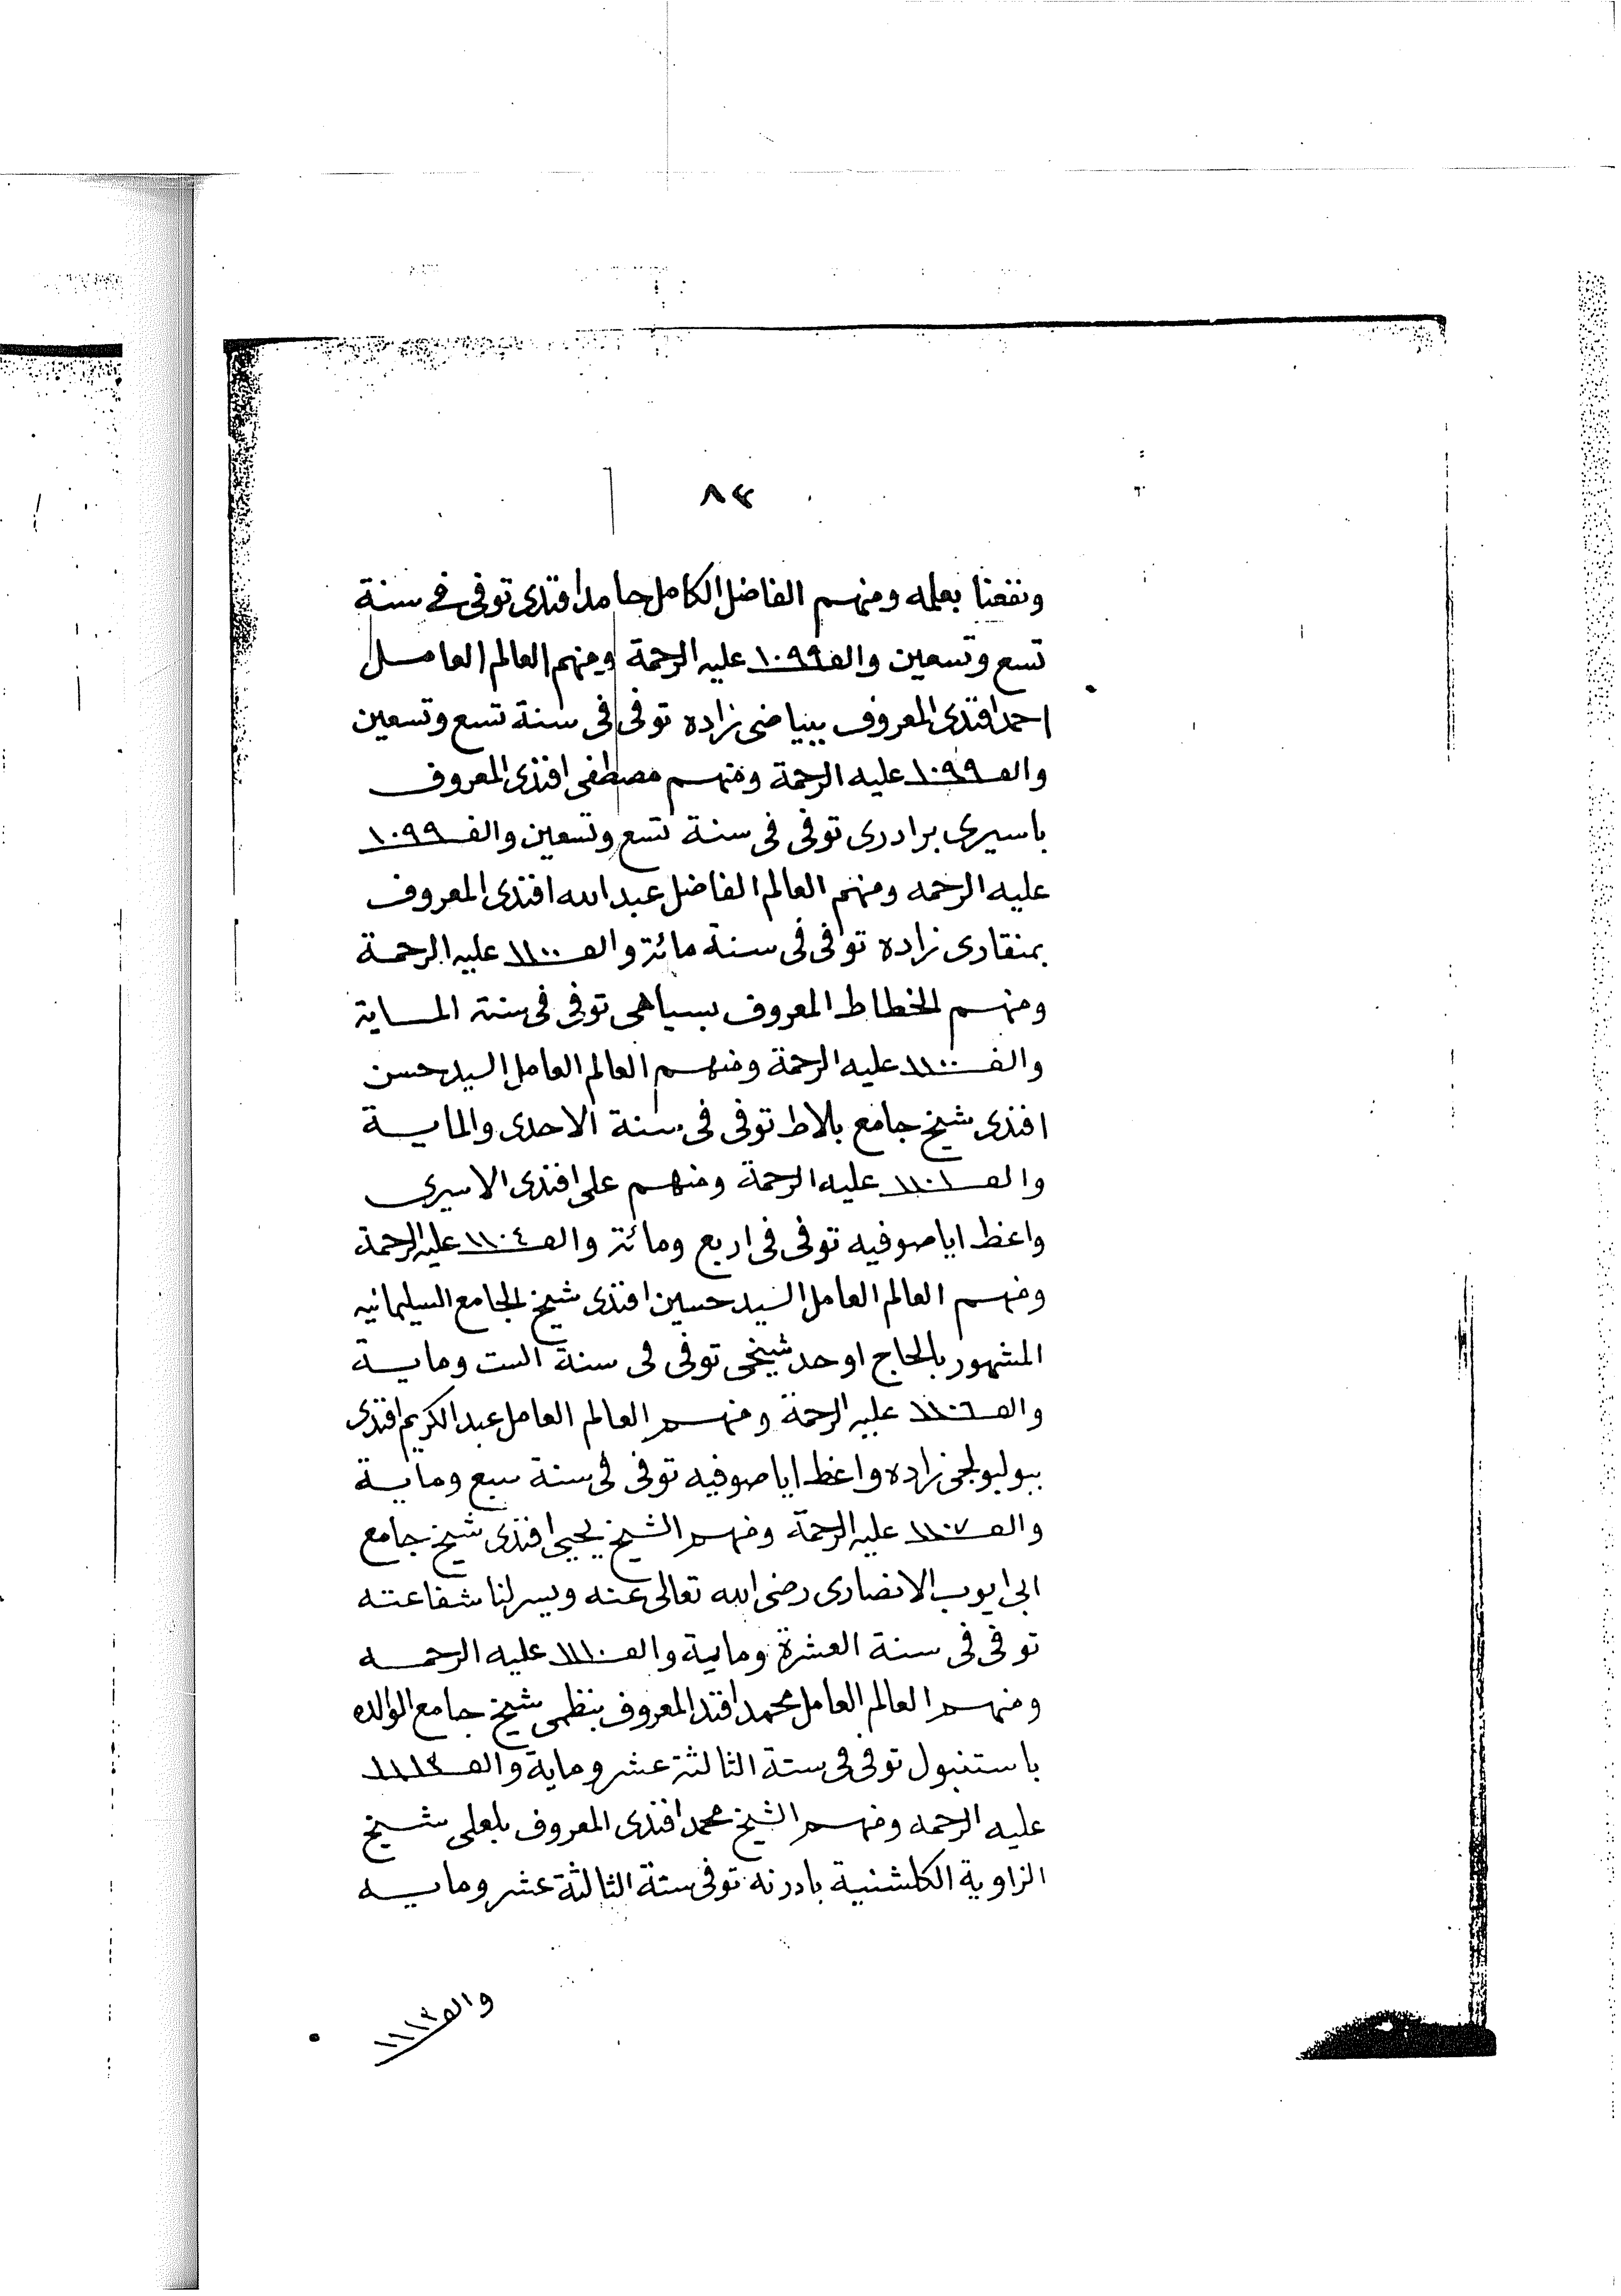 ٨٣
ونفعنا بعلمه ومنهم الفاضل الكامل حامد افندى توفى فى سنة
تسع وتسعين والف ١٠٩٩ عليه الرحمة ومنهم العالم العامل
احمد افندى المعروف ببياضى زاده توفى فى سنة تسع وتسعين
والف ١٠٩٩ عليه الرحمة ومنهم مصطفى افندى المعروف
باسيرى برادرى توفى فى سنة تسع وتسعين والف ١٠٩٩
عليه الرحمه ومنهم العالم الفاضل عبد الله افندى المعروف
بمنقادى زاده توفى فى سنة مائة والف ١١٠٠ عليه الرحمة
ومنهم الخطاط المعروف بسياهى توفى فى سنة الماية
والف ١١٠٠ عليه الرحمة ومنهم العالم العامل السيد حسن
افندى شيخ جامع بلاط توفى فى سنة الاحدى والماية
والف ١١٠١ عليه الرحمة ومنهم على افندى الاسيرى
واعظ اياصوفيه توفى فى اربع ومائة والف ١١٠٤ عليه الرحمة
ومنهم العالم العامل السيد حسين افندى شيخ الجامع السليمانيه
المشهور بالحاج اوحد شيخى توفى فى سنة الست وماية
والف ١١٠٦ عليه الرحمة ومنهم العالم العامل عبد الكريم افندى
ببولبولجى زاده واعظ اياصوفيه توفى فى سنة سبع وماية
والف ١١٠٧ عليه الرحمة ومنهم الشيخ يحيى افندى شيخ جامع
ابى ايوب الانصارى رضى الله تعالى عنه ويسر لنا شفاعته
توفى فى سنة العشرة وماية والف ١١١٠ عليه الرحمه
ومنهم العالم العامل محمد افند المعروف بنظمى شيخ جامع الوالده
باستنبول توفى فى سنة الثالثة عشر وماية والف ١١١٣
عليه الرحمه ومنهم الشيخ محمد افندى المعروف بلعلى شيخ
الزاوية الكلشنية بادرنه توفى سنة الثالثة عشر ومايه
والف ١١١٣